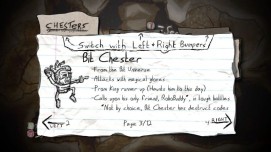 CHESTERS
Switch with Left + Right Bumpers
Bit Chester
-From the Bit Universe
-Attacks with magical gloves
-Prom King runner up (Haunts him to this day)
-Calls upon his only friend, RoboBuddy™, in tough battles
*Not by choice, Bit Chester has destruct codes
LEFT
Page 3/12
RIGHT